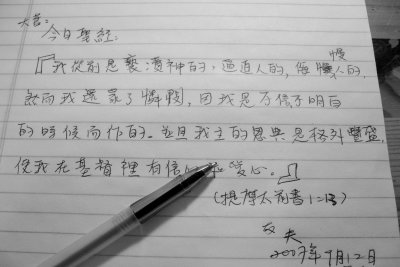 大哥:
今日聖經:
『我從前是褻瀆神的,逼迫人的,侮慢人的,
然而我還蒙了憐憫,因我是不信不明白
的時候而作的。並且我主的恩典是格外豐盛,
使我在基督裡有信心和愛心。』
(提摩太前書1:13)
2007年9月12日